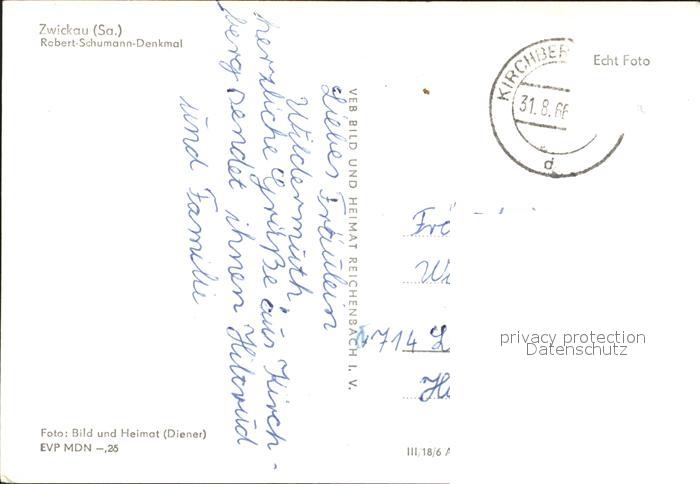 Zwickau (Sa.)
Robert-Schumann-Denkmal
Echt Foto
KIRCHBER
31.8.66
d
Liebes Fräulein
Wildermuth
herzliche Grüße aus Kirch-
berg sendet ihnen Hiltrud
und Familie
VEB BILD UND HEIMAT REICHENBACH I. V.
Frä
Wi
714 L
He
privacy protection
Datenschutz
Foto: Bild und Heimat (Diener)
EVP MDN –,25
III/18/6 A